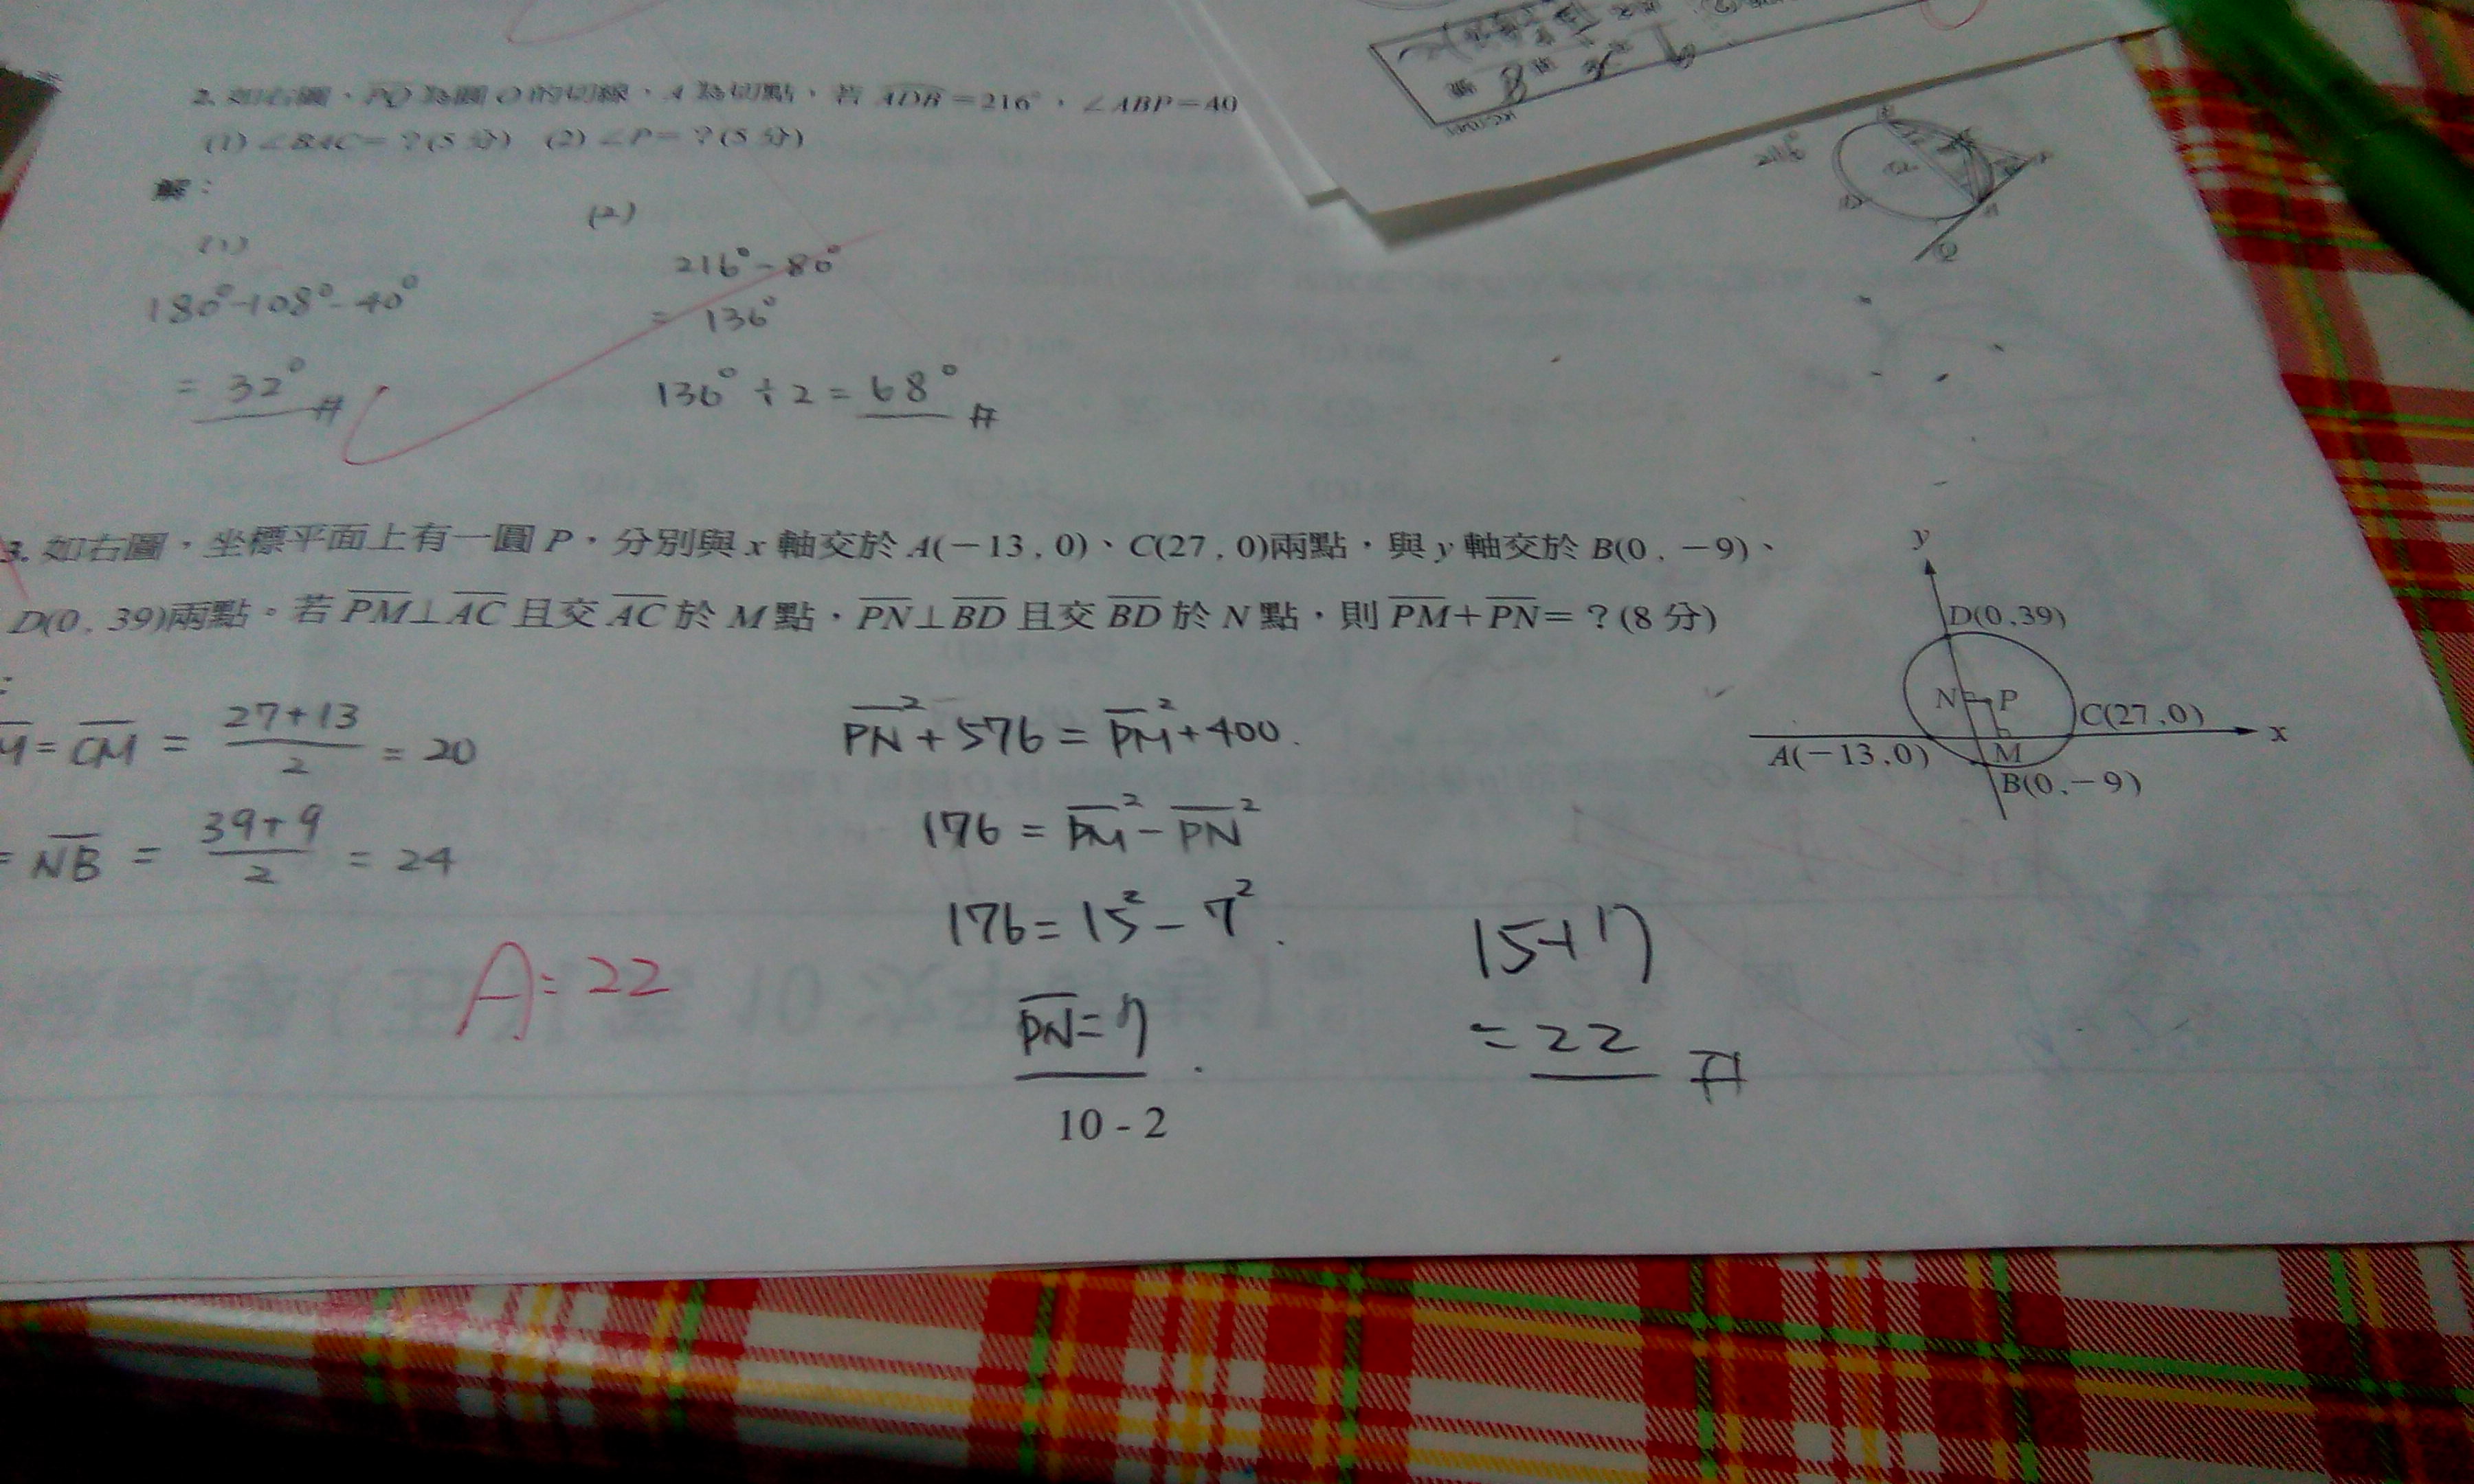 2. 如右圖，PQ 為圓 O 的切線，A 為切點，若 ADB＝216°，∠ABP＝40
(1) ∠BAC＝？(5 分) (2) ∠P＝？(5 分)
解：
(1)
180°-108°-40°
= 32° #
(2)
216°-80°
= 136°
136°÷2 = 68° #
216°
D
A
Q
3. 如右圖，坐標平面上有一圓 P，分別與 x 軸交於 A(－13 , 0)、C(27 , 0)兩點，與 y 軸交於 B(0 , －9)、
D(0 , 39)兩點。若 PM⊥AC 且交 AC 於 M 點，PN⊥BD 且交 BD 於 N 點，則 PM＋PN＝？(8 分)
M = CM = 27+13/2 = 20
= NB = 39+9/2 = 24
A=22
PN²+576 = PM²+400.
176 = PM²-PN²
176 = 15²-7².
PN=7
15+7
= 22 #
y
D(0,39)
N P
C(27,0)
x
A(－13,0)
M
B(0,－9)
10 - 2